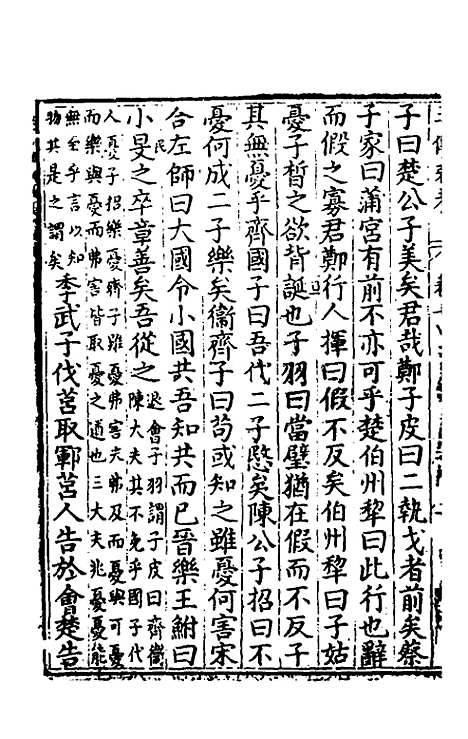 子曰楚公子美矣君哉鄭子皮曰二執戈者前矣蔡
子家曰蒲宮有前不亦可乎楚伯州犂曰此行也辭
而假之寡君鄭行人揮曰假不反矣伯州犂曰子姑
憂子晳之欲背誕也子羽曰當璧猶在假而不反子
其無憂乎齊國子曰吾代二子愍矣陳公子招曰不
憂何成二子樂矣衞齊子曰苟或知之雖憂何害宋
合左師曰大國令小國共吾知共而已晉樂王鮒曰
小旻民之卒章善矣吾從之退會子羽謂子皮曰齊衞陳大夫其不免乎國子代
人憂子招樂憂齊子雖憂弗害夫弗及而憂與可憂而樂與憂而弗害皆取憂之道也三大夫兆憂憂能
無至乎言以知物其是之謂矣季武子伐莒取鄆莒人告於會楚告